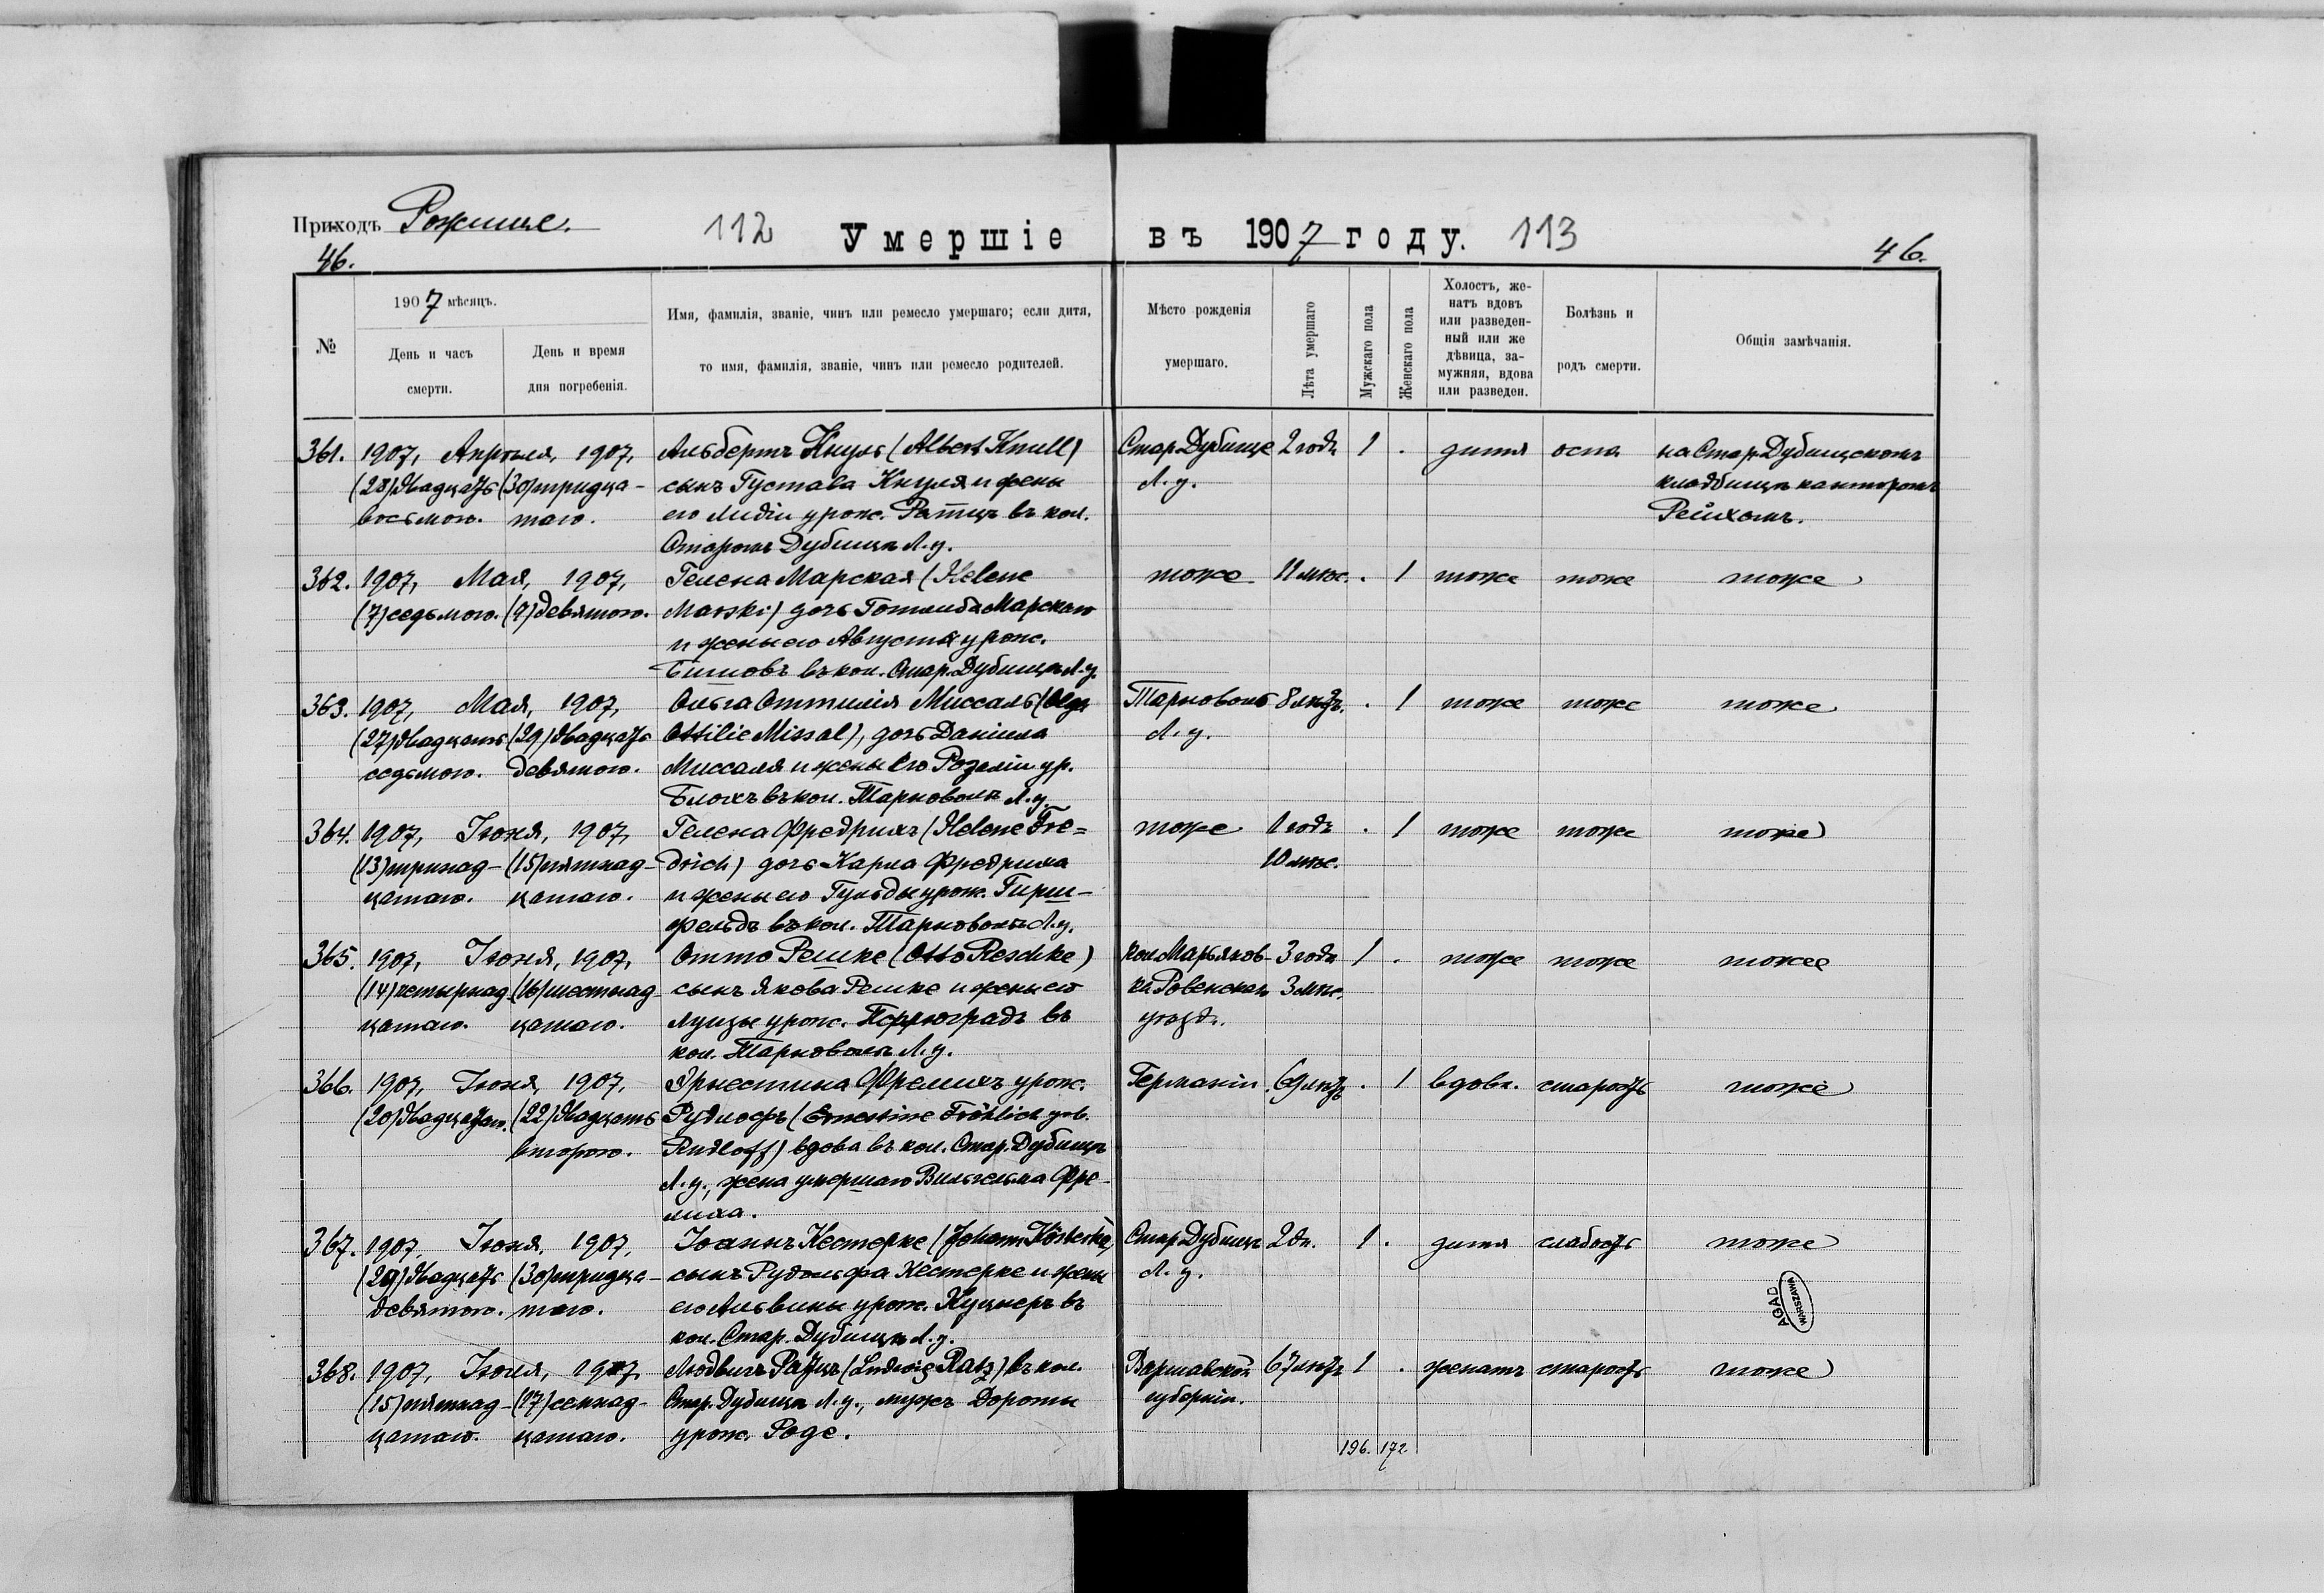 Приходъ Рожище.
112
Умершіе
въ 1907 году.
113
46.
46.
№
1907 мѣсяцъ.
День и часъ
смерти.
День и время
дня погребенія.
Имя, фамилія, званіе, чинъ или ремесло умершаго; если дитя,
то имя, фамилія, званіе, чинъ или ремесло родителей.
Мѣсто рожденія
умершаго.
Лѣта умершаго
Мужскаго пола
Женскаго пола
Холостъ, же-
натъ вдовъ
или разведен-
ный или же
дѣвица, за-
мужняя, вдова
или разведен.
Болѣзнь и
родъ смерти.
Общія замѣчанія.
361. 1907, Апрѣля, 1907, Альбертъ Кнуль (Albert Knull) Стар. Дубище 2 года 1 . дитя оспа на Стар. Дубищскомъ
(28) двадцать (30) тридца- сынъ Густава Кнуля и жены Л. у. кладбищѣ канторомъ
восьмого. таго. его Лидіи урож. Ратцъ въ кол. Рейхомъ.
Старомъ Дубищѣ Л. у.
362. 1907, Мая, 1907, Гелена Марская (Helene тоже 11 мѣс. . 1 тоже тоже тоже
(7) седьмого. (9) девятого. Marski) дочь Готлиба Марскаго
и жены его Августы урож.
въ кол. Стар. Дубищѣ Л. у.
363. 1907, Мая, 1907, Ольга Оттилія Миссаль (Olga Тарноволь 8 лѣтъ. . 1 тоже тоже тоже
(27) двадцать (29) двадцать Ottilie Missal), дочь Даніила Л. у.
седьмого. девятого. Миссаля и жены его Розаліи ур.
Блохъ въ кол. Тарноволѣ Л. у.
364. 1907, Іюня, 1907, Гелена Фредрихъ (Helene Fre= тоже 1 годъ . 1 тоже тоже тоже
(13) тринад- (15) пятнад- drich) дочь Карла Фредриха 10 мѣс.
цатаго. цатаго. и жены его Гульды урож. Гирш-
фельдъ въ кол. Тарноволѣ Л. у.
365. 1907, Іюня, 1907, Отто Решке (Otto Reschke) кол. Марьянов- 3 года 1 . тоже тоже тоже
(14) четырнад- (16) шестнад- сынъ Якова Решке и жены его ка Ровенскаго 3 мѣс.
цатаго. цатаго. Луизы урож. въ уѣзд.
кол. Тарноволѣ Л. у.
366. 1907, Іюня, 1907, Эрнестина Фрелихъ урож. Германіи 69 лѣтъ . 1 вдова. старость тоже
(20) двадцатаго. (22) двадцать Рудлофъ (Ernestine Fröhlich geb.
второго. Rudloff) вдова въ кол. Стар. Дубищѣ
Л. у., жена умершаго Вильгельма Фре-
лиха.
367. 1907, Іюня, 1907, Іоаннъ Кестерке (Johann Kösterke) Стар. Дубищѣ 2 дн. 1 . дитя слабость тоже
(29) двадцать (30) тридца- сынъ Рудольфа Кестерке и жены Л. у.
девятого. таго. его Альвины урож. Куцнеръ въ
кол. Стар. Дубищѣ Л. у.
368. 1907, Іюля, 1907, Людвигъ Ратцъ (Ludwig Ratz) въ кол. Варшавской 67 лѣтъ 1 . женатъ старость тоже
(15) пятнад- (17) семнад- Стар. Дубищѣ Л. у., мужъ Дороты губерніи.
цатаго. цатаго. урож. Роде.
196. 172
AGAD
WARSZAWA